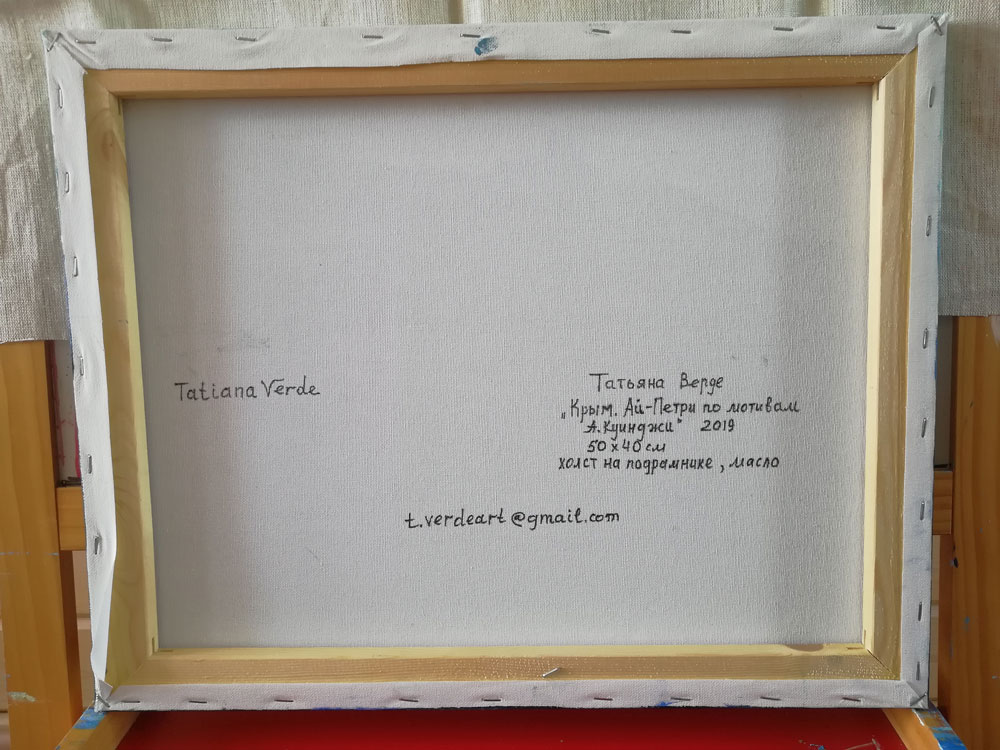 Tatiana Verde
Татьяна Верде
„Крым. Ай-Петри по мотивам
А. Куинджи" 2019
50 x 40 см
холст на подрамнике, масло
t.verdeart@gmail.com